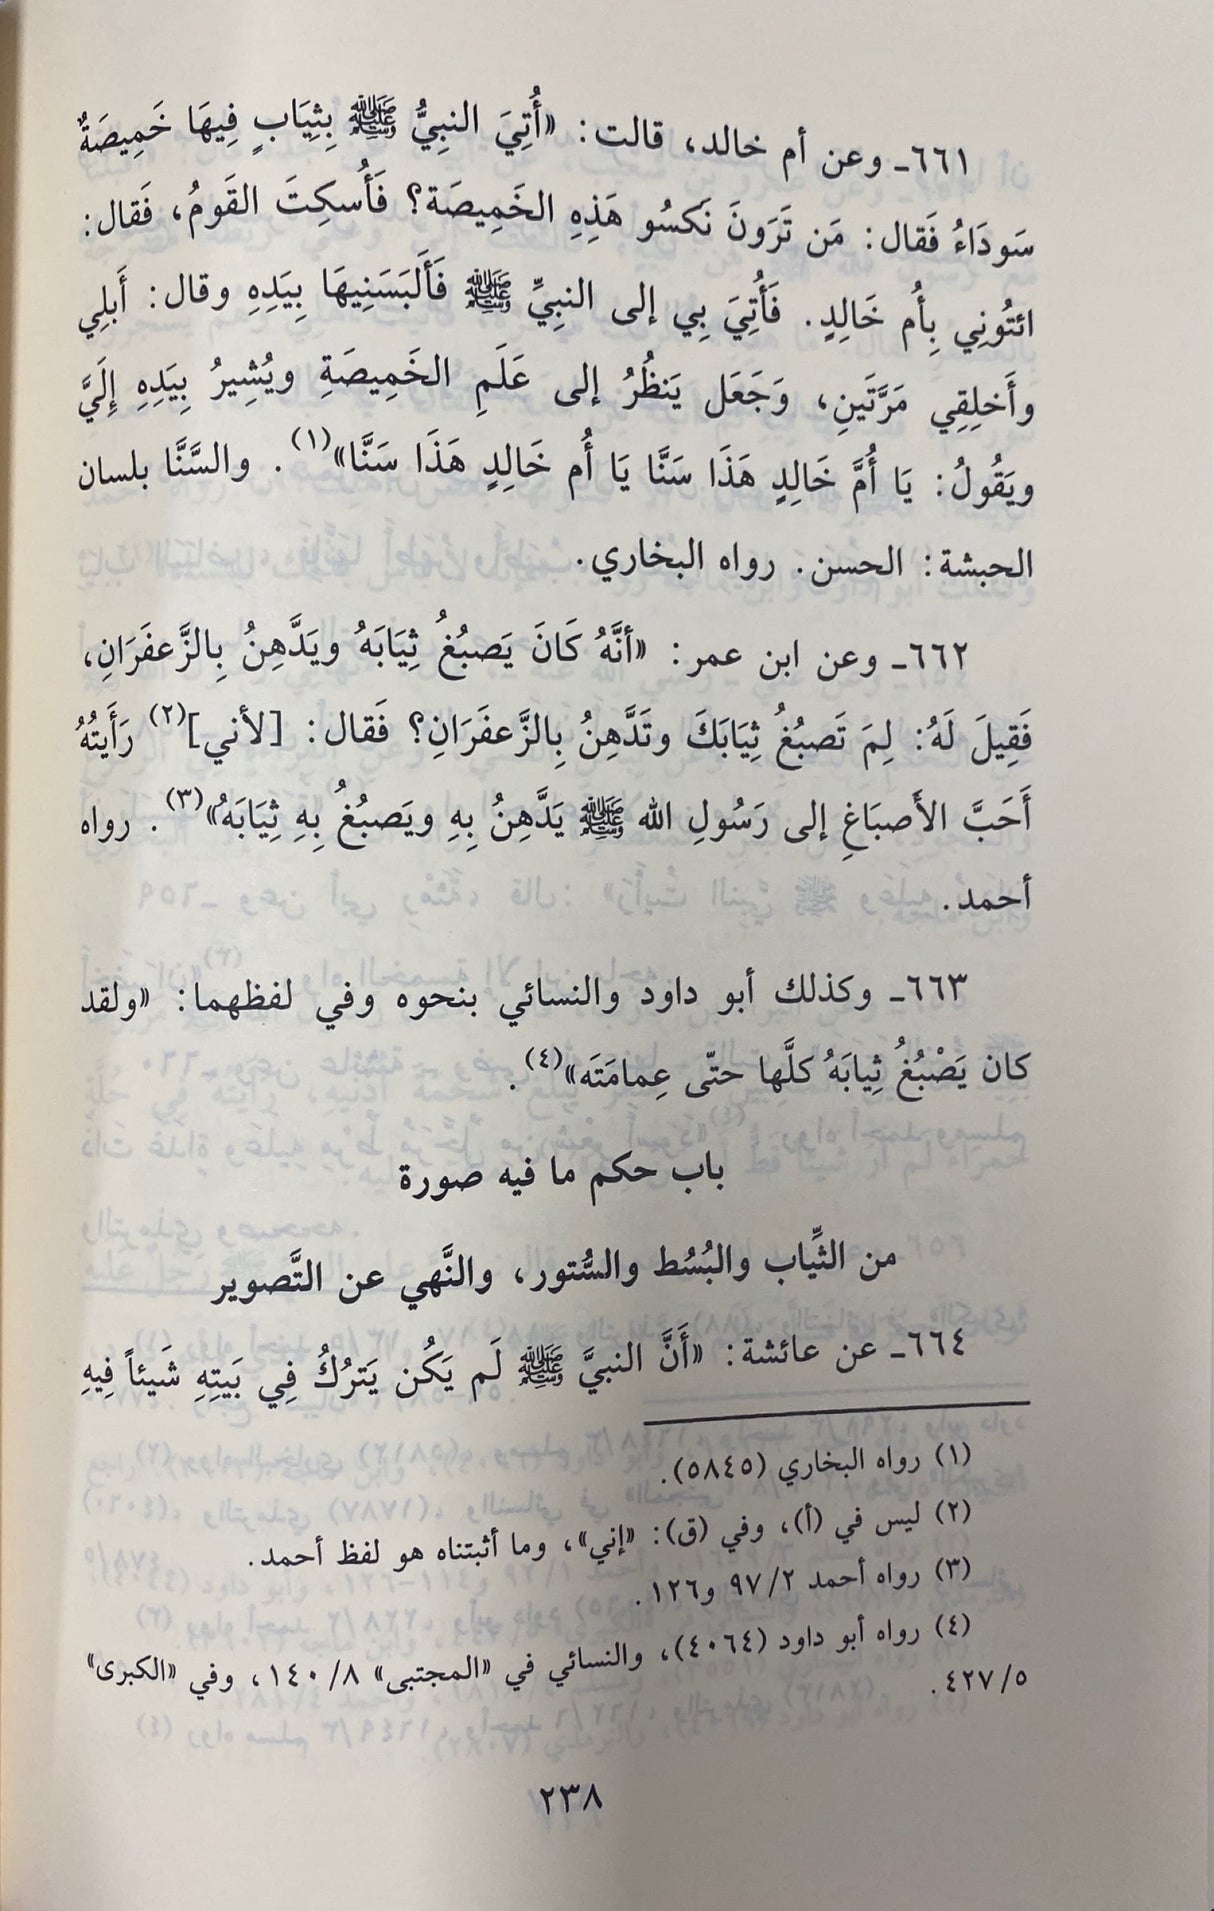 ٦٦١ـ وعن أم خالد، قالت: «أُتِيَ النبِيُّ ﷺ بِثِيَابٍ فِيهَا خَمِيصَةٌ
سَودَاءُ فَقال: مَن تَرَونَ نَكسُو هَذِهِ الخَمِيصَة؟ فَأُسكِتَ القَومُ، فَقال:
ائتُونِي بِأُم خَالِدٍ. فَأُتِيَ بِي إلى النبِيِّ ﷺ فَأَلبَسَنِيهَا بِيَدِهِ وقال: أَبلِي
وأَخلِقِي مَرَّتَينِ، وَجَعَل يَنظُرُ إلى عَلَمِ الخَمِيصَةِ ويُشِيرُ بِيَدِهِ إِلَيَّ
ويَقُولُ: يَا أُمَّ خَالِدٍ هَذَا سَنَّا يَا أُم خَالِدٍ هَذَا سَنَّا»(١). والسَّنَّا بلسان
الحبشة: الحسن. رواه البخاري.
٦٦٢ـ وعن ابن عمر: «أنَّهُ كَانَ يَصبُغُ ثِيَابَهُ ويَدَّهِنُ بِالزَّعفَرَانِ،
فَقِيلَ لَهُ: لِمَ تَصبُغُ ثِيَابَكَ وتَدَّهِنُ بِالزَّعفَرَانِ؟ فَقال: [لأني](٢) رَأَيتُهُ
أَحَبَّ الأَصبَاغِ إلى رَسُولِ الله ﷺ يَدَّهِنُ بِهِ ويَصبُغُ بِهِ ثِيَابَهُ»(٣). رواه
أحمد.
٦٦٣ـ وكذلك أبو داود والنسائي بنحوه وفي لفظهما: «ولقد
كان يَصْبُغُ ثِيابَهُ كلَّها حتّى عِمامَتَه»(٤).
باب حكم ما فيه صورة
من الثِّياب والبُسُط والسُّتور، والنَّهي عن التَّصوير
٦٦٤ـ عن عائشة: «أَنَّ النبيَّ ﷺ لَم يَكُن يَترُكُ فِي بَيتِهِ شَيئاً فِيهِ
(١) رواه البخاري (٥٨٤٥).
(٢) ليس في (أ)، وفي (ق): «إني»، وما أثبتناه هو لفظ أحمد.
(٣) رواه أحمد ٩٧/٢ و١٢٦.
(٤) رواه أبو داود (٤٠٦٤)، والنسائي في «المجتبى» ١٤٠/٨، وفي «الكبرى»
٤٢٧/٥.
٢٣٨